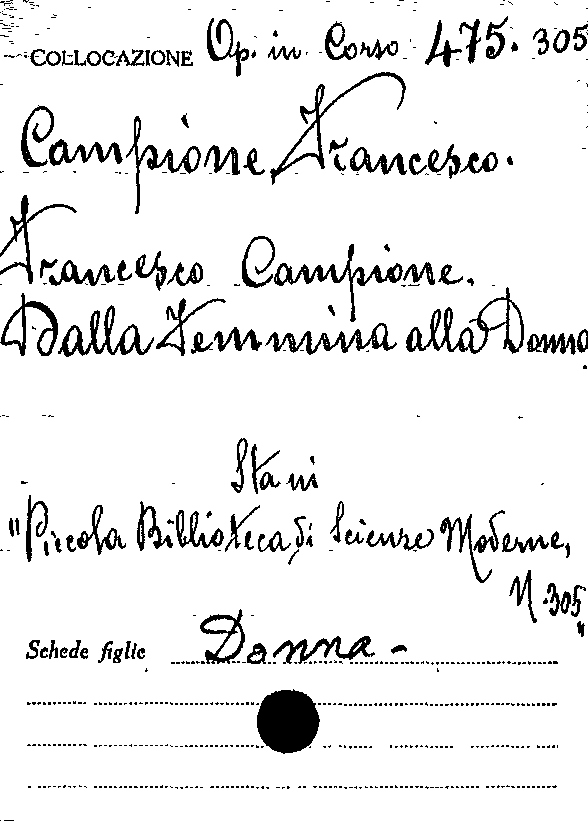 COLLOCAZIONE Op. in Corso 475. 305
Campione Francesco.
Francesco Campione.
Dalla Femmina alla Donna.
Sta in
"Piccola Biblioteca di Scienze Moderne,
N. 305"
Schede figlie Donna -